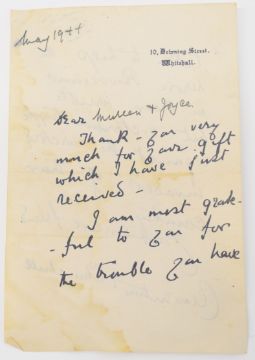 May 1944
10, Downing Street,
Whitehall.
Dear Maureen & Joyce
Thank you very
much for your gift
which I have just
received -
I am most grate-
-ful to you for
the trouble you have